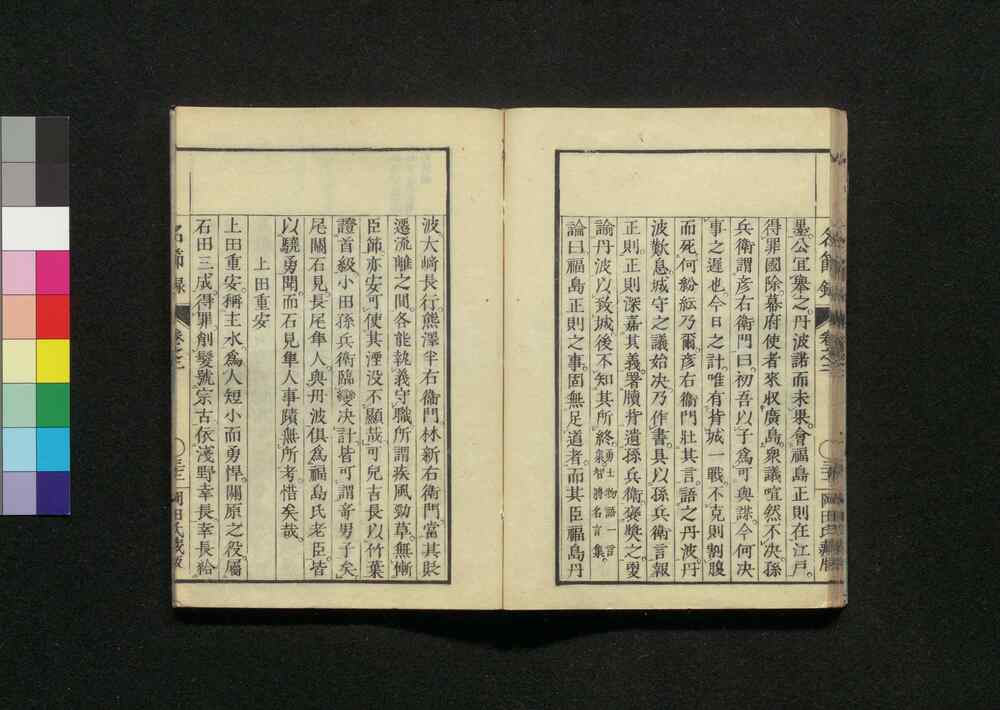 名節録
卷之三
岡田氏藏版
墨公宜擧之丹波諾而未果會福島正則在江戸
得罪國除幕府使者來收廣島衆議喧然不决孫
兵衛謂彦右衛門曰初吾以子爲可與謀今何决
事之遲也今日之計唯有背城一戰不克則割腹
而死何紛紜乃爾彦右衛門壯其言語之丹波丹
波歎息城守之議始决乃作書具以孫兵衛言報
正則正則深嘉其義署牘背遺孫兵衛褒奬之
諭丹波以致城後不知其所終勇士物語一言集智將名言集
論曰福島正則之事固無足道者而其臣福島丹
波大﨑長行熊澤半右衞門林新右衛門當其貶
遷流離之間各能執義守職所謂疾風勁草無慚
臣節亦安可使其湮没不顯哉可兒吉長以竹葉
證首級小田孫兵衛臨變决計皆可謂竒男子矣
尾關石見長尾隼人與丹波俱爲福島氏老臣皆
以驍勇聞而石見隼人事蹟無所考惜矣哉
上田重安
上田重安稱主水爲人短小而勇悍關原之役屬
石田三成得罪削髮號宗古依淺野幸長幸長給
名節録
卷之三
岡田氏藏版